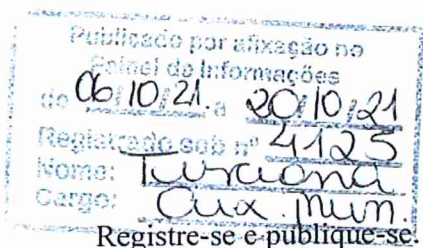 Publicado por afixação no
Painel de Informações
de 06/10/21. a 20/10/21
Registrado sob nº 4125
Nome:
Cargo: Aux. Mun.
Registre-se e publique-se.